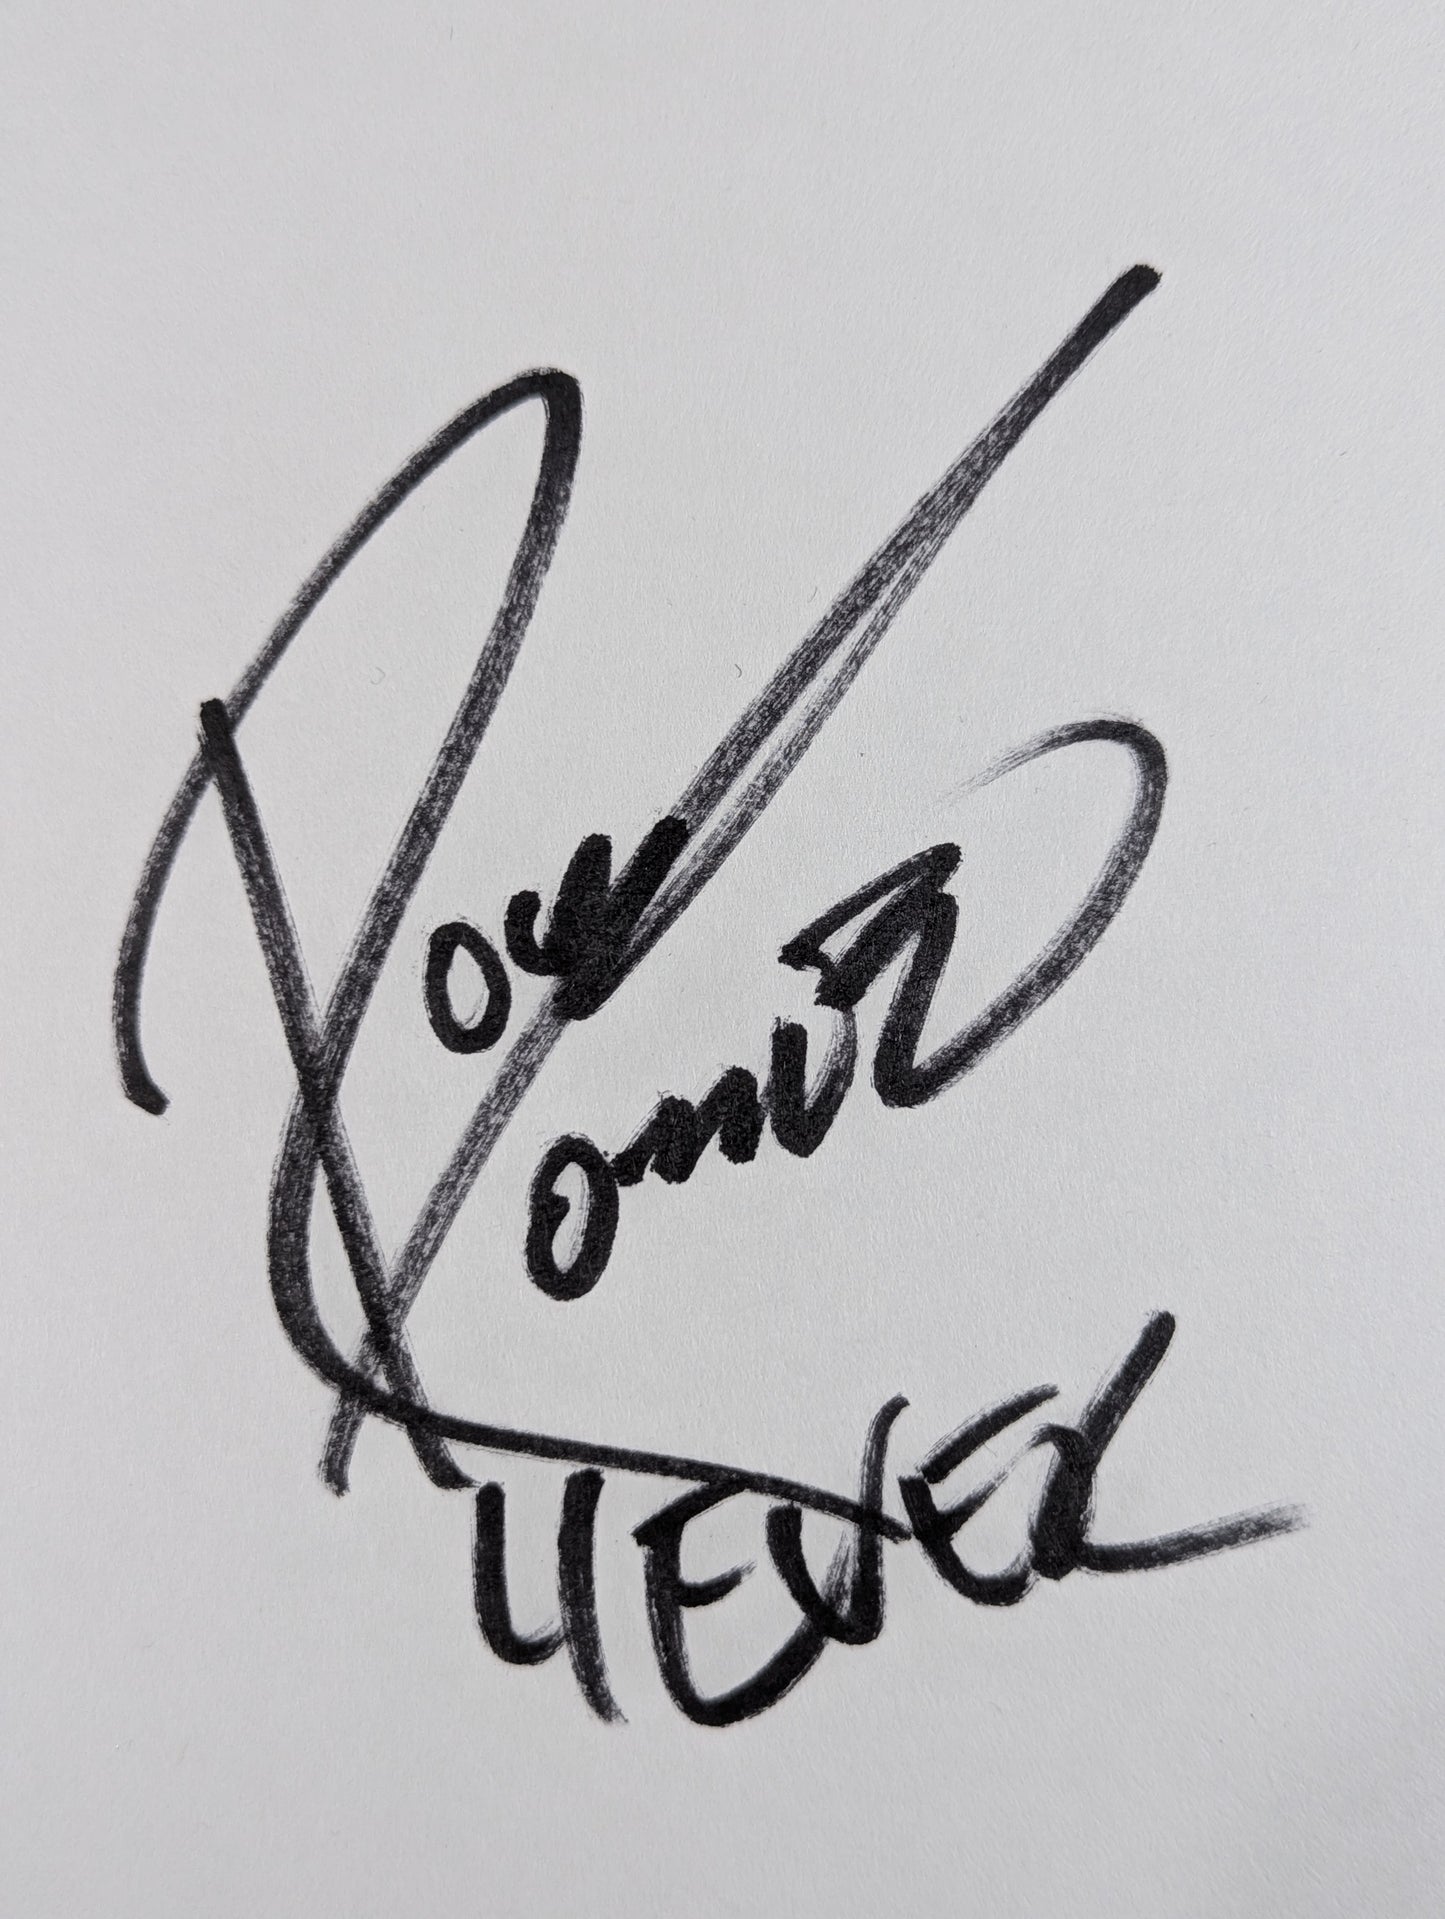 Rocky
Romero
4EVER